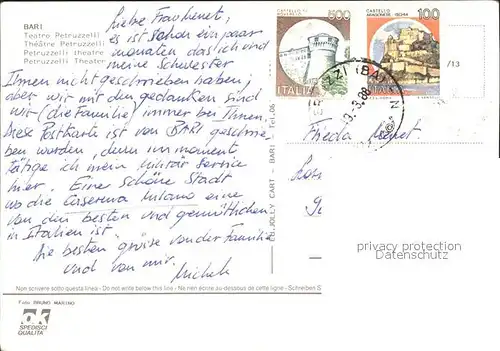 BARI
Teatro Petruzzelli
Théâtre Petruzzelli
Petruzzelli theatre
Petruzzelli Theater
Liebe Frau Menet,
es ist schon ein paar
monaten das ich und
meine Schwester
Ihnen nicht geschrieben haben,
aber wir mit den gedanken sind
wir (die Familie) immer bei Ihnen,
Diese Postkarte ist von BARI geschrie
ben worden, denn im moment
tätige ich mein militär service
hier. Eine schöne Stadt
wo die Caserma Milano eine
von den besten und gemütlichen
in Italien ist.
Die besten grüsse von der Familie
und von mir.
Michele
CASTELLO DI
ROVERETO
500
ITALIA
CASTELLO
ARAGONESE - ISCHIA
100
ITALIA
/13
Frieda Menet
EDIJOLLY CART - BARI - Tel. 06
privacy protection
Datenschutz
Non scrivere sotto questa linea - Do not write below this line - Ne rien écrire au-dessous de cette ligne - Schreiben S
Foto: BRUNO MARINO
OK
SPEDISCI
QUALITÀ